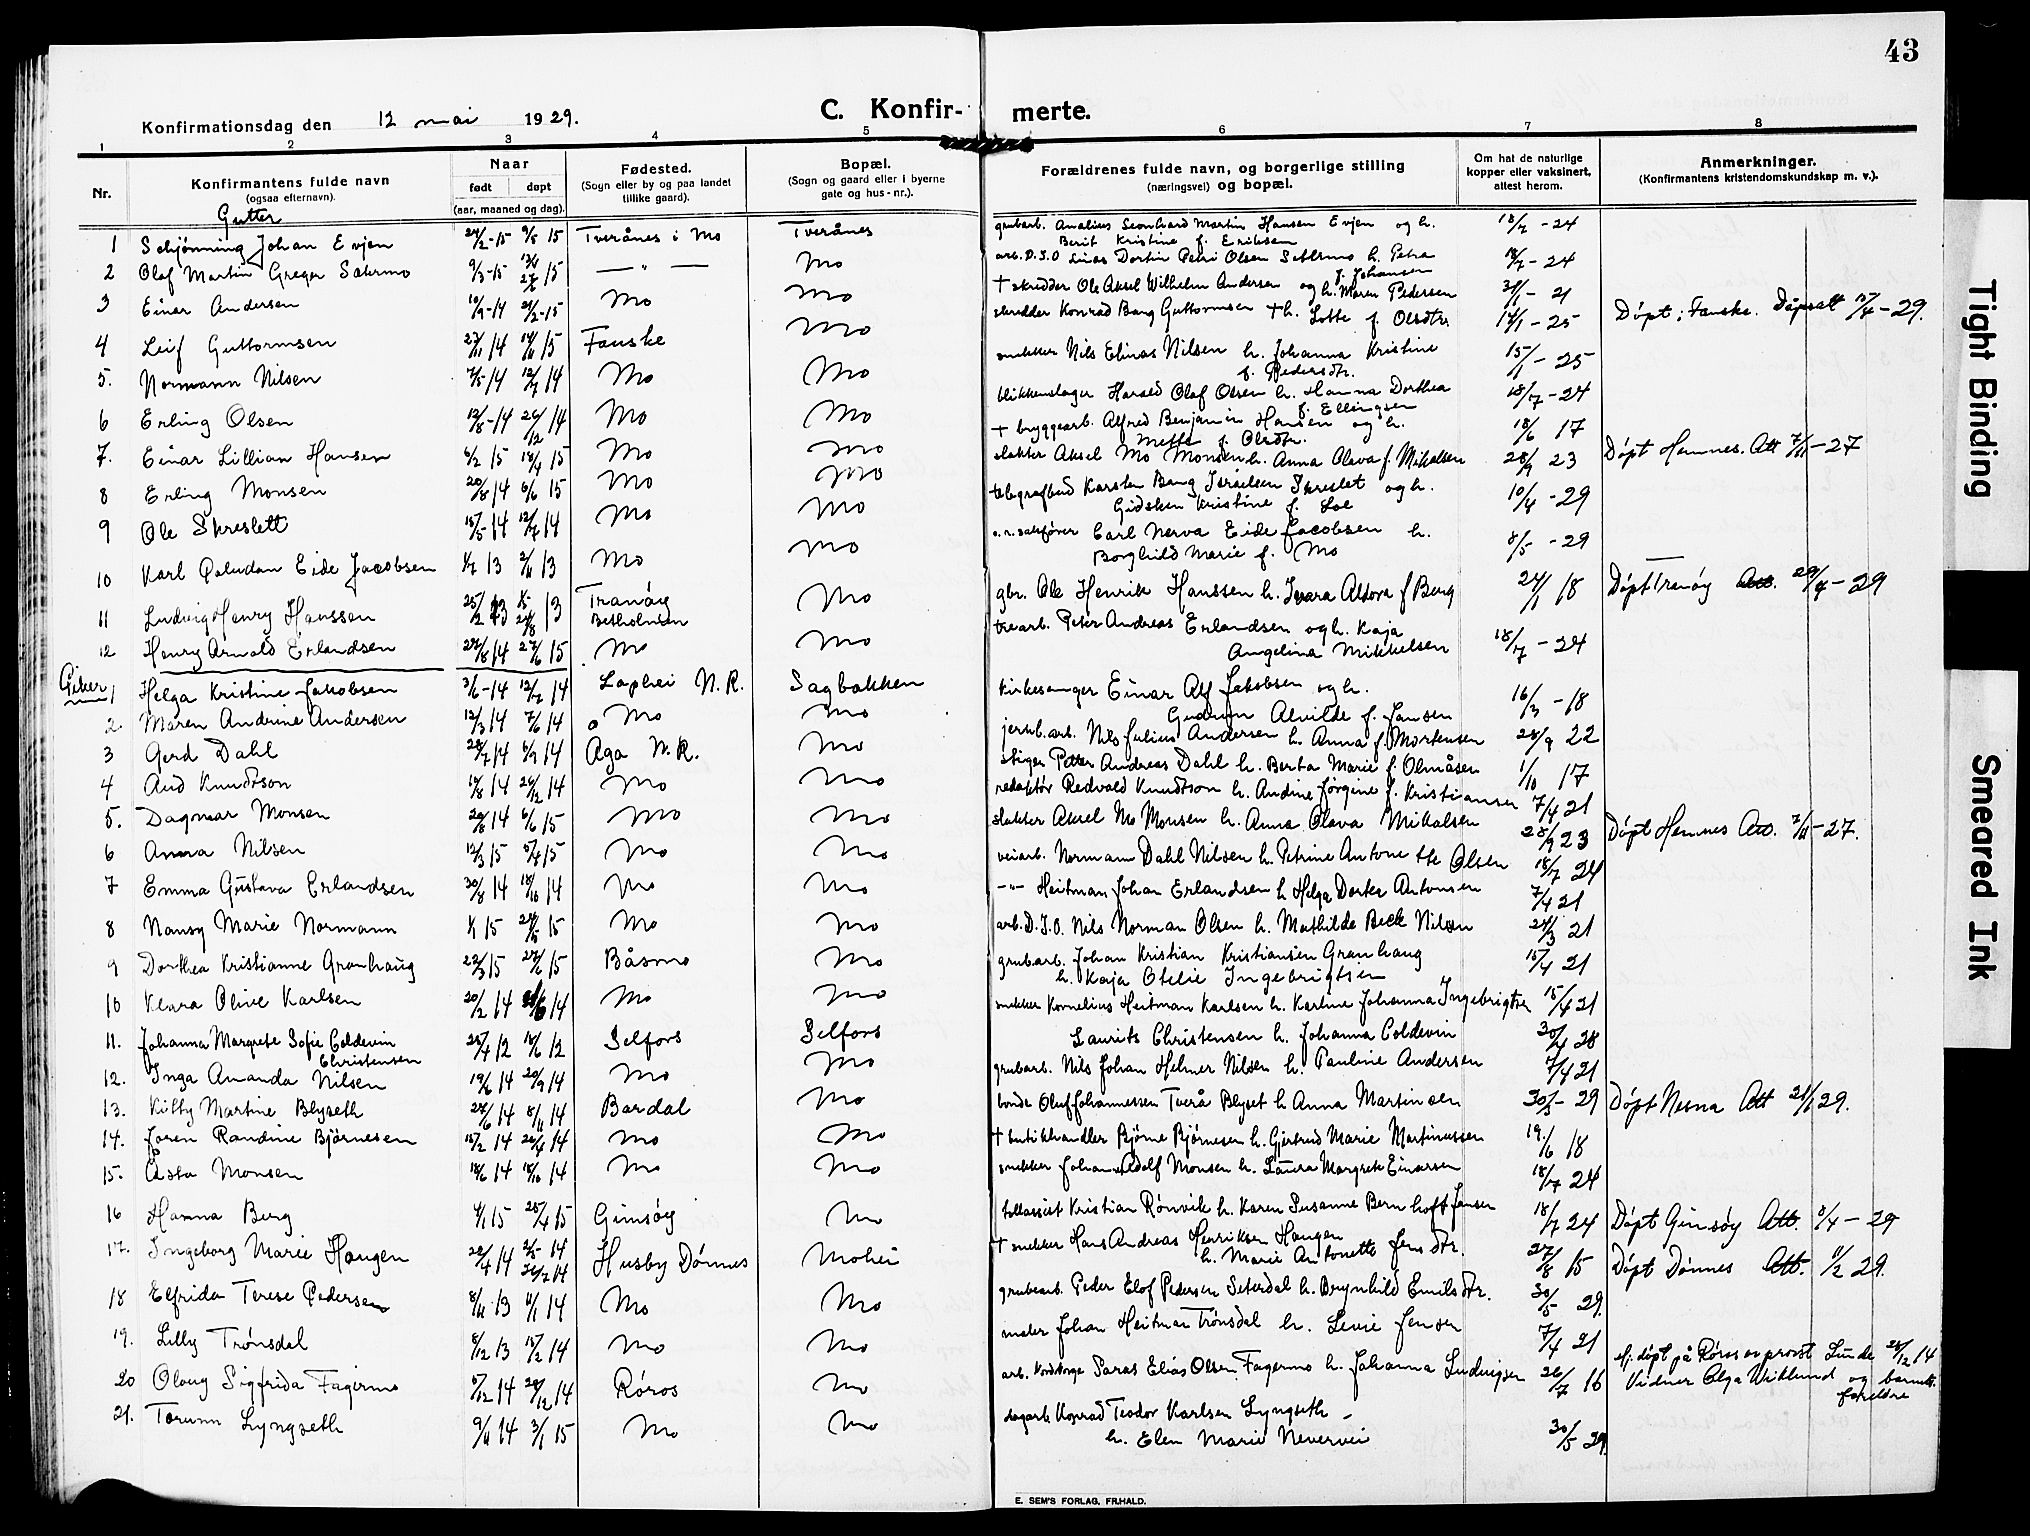 43
Konfirmationsdag den 12 mai 1929.
C. Konfir- merte.
1 2 3 4 5 6 7 8
Nr.
Konfirmantens fulde navn
(ogsaa efternavn).
Naar
født døpt
(aar, maaned og dag).
Fødested.
(Sogn eller by og paa landet
tillike gaard).
Bopæl.
(Sogn og gaard eller i byerne
gate og hus-nr.).
Forældrenes fulde navn, og borgerlige stilling
(næringsvei) og bopæl.
Om hat de naturlige
kopper eller vaksinert,
attest herom.
Anmerkninger.
(Konfirmantens kristendomskundskap m. v.).
Gutter
1 Schjønning Johan Evjen 24/2-15 9/5 15 Tverånes i Mo Tverånes grubearb. Analius Leonhard Martin Hansen Evjen og h. 18/7-24
Berit Kristine f. Eriksen
2 Olaf Martin Greger Sætermo 9/3-15 15 —"— Mo arb. D.I.O. Petri Olsen h. Petra 18/7-24
f. Johansen
3 Einar Andersen 10/9-14 21/2-15 Mo Mo + skrædder Ole Aksel Wilhelm Andersen og h. Maren Pedersen 31/1-21
4 Leif Guttormsen 27/11 14 15 Fauske Mo skredder Konrad Bang Guttormsen + h. Lotte f. Olsdtr. 14/1-25 Døpt i Fauske. Dåpsatt 15/4-29.
5. Normann Nilsen 7/5 14 12/7 14 Mo Mo snekker Nils Elinas Nilsen h. Johanna Kristine 15/1-25
f. Pedersdtr.
6 Erling Olsen 12/8-14 26/12 14 Mo Mo blikkenslager Harald Olaf Olsen h. Hanna Dorthea 18/7-24
f. Ellingsen
7. Einar Lillian Hansen 6/2 15 18/4 15 Mo Mo + bryggearb. Alfred Benjamin Hansen og h. 18/6 17
Mette f. Olsdtr.
8 Erling Monsen 20/8 14 6/6 15 Mo Mo slakter Aksel Mo Monsen h. Anna Olava f. Mikalsen 28/9 23 Døpt Hemnes. Att 7/11-27
9 Ole Skreslett 15/5 14 12/7 14 Mo Mo telegrafbud Karsten Bang Israelsen Skreslet og h. 10/4-29
Gidsken Kristine f. Loe
10 Karl Paludan Eide Jacobsen 1/7 13 2/11 13 Mo Mo o.r.sakfører Carl Nerva Eide Jacobsen h. 8/5-29
Borghild Marie f. Mo
11 Ludvig Henry Hanssen 25/2 13 24/8 13 Tranøy Mo gbr. Ole Henrik Hanssen h. Aldora f Berg 24/1 18 Døpt Tranøy Att. 29/4-29
Betholmen
12 Henry Arnold Erlandsen 28/8 14 27/6 15 Mo Mo trearb. Peter Andreas Erlandsen og h. Kaja 18/7-24
Angelina Mikkelsen
Piker
1 Helga Kristine Jakobsen 3/6-14 12/7 14 Laphei N.R. Sagbakken kirkesanger Einar Alf Jakobsen og h. 16/3-18
Gudrun Alvilde f. Jansen
2. Maren Andrine Andersen 12/3 14 7/6 14 Mo Mo jernb.arb. Nils Julius Andersen h. Anna f. Mortensen 28/9 22
3 Gerd Dahl 28/7 14 6/9 14 Aga N.R. Mo stiger Petter Andreas Dahl h. Berta Marie f. Olmåsen 1/10 17
4 Aud Knudtson 10/8 14 26/12 14 Mo Mo redaktør Redvald Knudtson h. Andine Jørgine f. Kristiansen 7/4 21
5. Dagmar Monsen 20/8 14 6/6 15 Mo Mo slakter Aksel Mo Monsen h. Anna Olava Mikalsen 28/9 23 Døpt Hemnes Att. 7/11-27.
6 Anna Nilsen 12/3 15 5/4 15 Mo Mo veiarb. Normann Dahl Nilsen h. Petrine Antonette Olsen 18/7 24
7 Emma Gustava Erlandsen 30/8 14 18/10 14 Mo Mo -"- Heitman Johan Erlandsen h Helga Dorkea Antonsen 7/4 21
8 Nansy Marie Normann 1/1 15 24/5 15 Mo Mo arb. D.I.O. Nils Norman Olsen h. Mathilde Beck Nilsen 24/3 21
9 Dorthea Kristianne Granhaug 22/3 15 27/6 15 Båsmo Mo grubarb. Johan Kristian Kristiansen Granhaug 15/4 21
h. Kaja Otelie Ingebrigtsen
10 Klara Olive Karlsen 20/2 14 14 Mo Mo snekker Kornelius Heitman Karlsen h. Karline Johanna Ingebrigtsen 15/4 21
11. Johanna Margrete Sofie Coldevin 25/4 12 16/6 12 Selfors Selfors Laurits Christensen h. Johanna Coldevin 30/4 28
Christensen
12. Inga Amanda Nilsen 19/6 14 20/9 14 Mo Mo grubarb. Nils Johan Helmer Nilsen h. Pauline Andersen 7/4 21
13. Kitty Martine Blyseth 24/6 14 8/11 14 Bardal Mo bonde Oluf Johannessen Tverå Blyset h Anna Martinsen 30/5-29 Døpt Nesna Att 21/1 29.
14. Joren Randine Bjørnesen 15/2 14 26/4 14 Mo Mo + butikkhandler Bjørne Bjørnesen h. Gjertrud Marie Martinussen 19/6 18
15. Åsta Monsen 18/6 14 18/10 14 Mo Mo snekker Johan Adolf Monsen h. Laura Margrete Einarsen 18/7 24
16 Hanna Berg 4/1 15 25/4 15 Gimsøy Mo tollassist Kristian Rønvik h. Karen Susanne Bernhoff Jansen 18/7 24 Døpt Gimsøy Att. 8/4-29
17. Ingeborg Marie Haugen 22/4 14 2/5-14 Husby Dønnes Mohei + snekker Hans Andreas Henriksen Haugen 27/8 15 Døpt Dønnes Att. 11/2 29.
26/7 14 h. Marie Antonette Jensdtr.
18 Elfrida Terese Pedersen 8/11 13 4/1 14 Mo Mo grubearb. Peder Elof Pedersen Seterdal h. Brynhild Emilsdtr. 30/5 29.
19. Lilly Trønsdal 8/12 13 15/2 14 Mo Mo maler Johan Heitman Trønsdal h. Levie Jensen 7/4 21
20 Olaug Sigfrida Fagermo 5/12 14 28/12 14 Røros Mo arb. Saras Elias Olsen Fagermo h. Johanna Ludvigsen 26/7 16 hj. døpt på Røros av prost Lunde 28/12 14
Vidner Olga Wiklund og barnets
foreldre
21. Torunn Lyngseth 9/11 14 3/1 15 Mo Mo dagarb. Konrad Teodor Karlsen Lyngseth - 30/5 29.
h. Elen Marie Nevervei
E. SEM'S FORLAG, FR.HALD.
Tight Binding
Smeared Ink